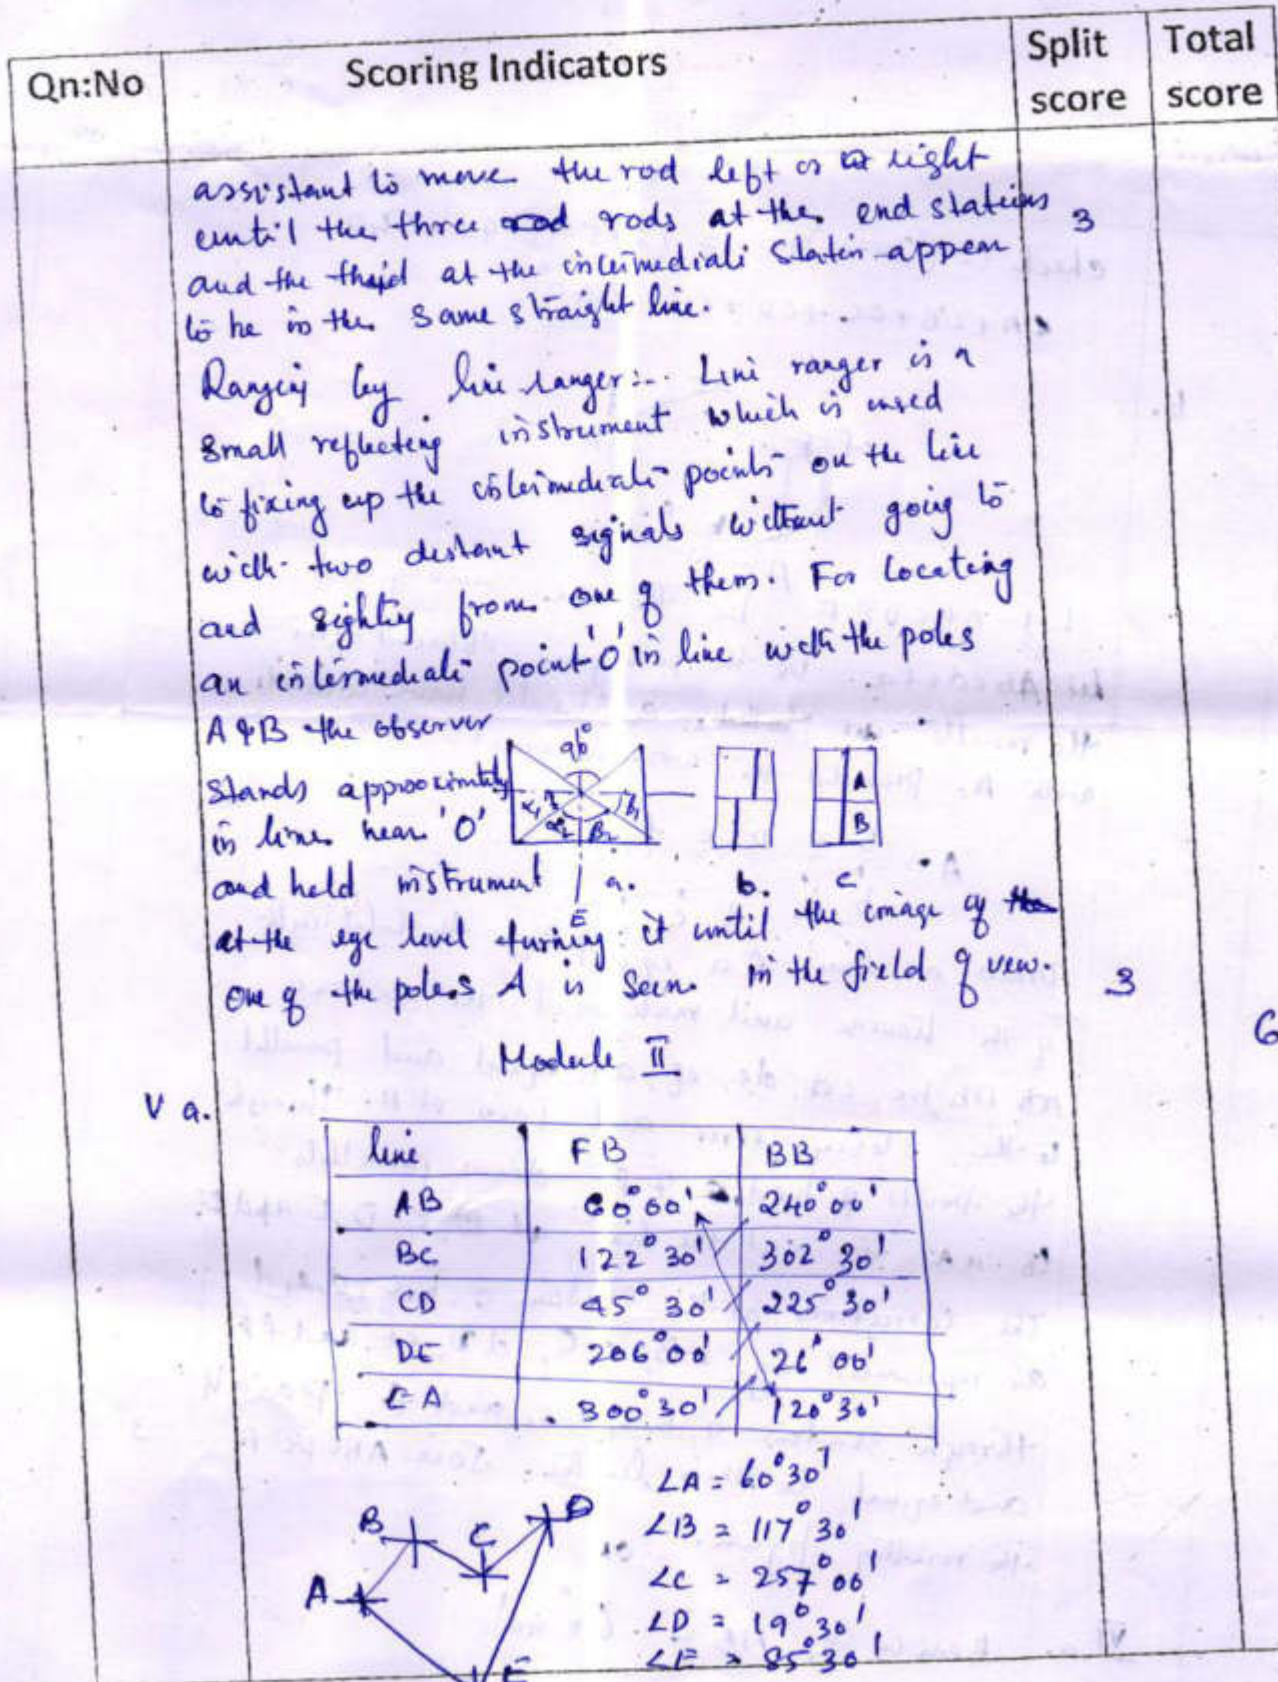 Qn:No Scoring Indicators Split score Total score
assistant to move the rod left or right
until the three rods at the end stations 3
and the third at the intermediate station appear
to be in the same straight line.
Ranging by line ranger:- Line ranger is a
small reflecting instrument which is used
to fixing up the intermediate points on the line
with two distant signals without going to
and sighting from one of them. For locating
an intermediate point 'O' in line with the poles
A & B the observer
stands approximately
in line near 'O'
90°
α₁ α₂ β₂ β₁
A
B
and held instrument a. b. c
E
at the eye level turning it until the image of the
one of the poles A is seen in the field of view. 3
6
Module II
V a.
line FB BB
AB 60°00' 240°00'
BC 122°30' 302°30'
CD 45°30' 225°30'
DE 206°00' 26°00'
EA 300°30' 120°30'
∠A = 60°30'
∠B = 117°30'
∠C = 257°00'
∠D = 19°30'
∠E = 85°30'
B C D
A
E